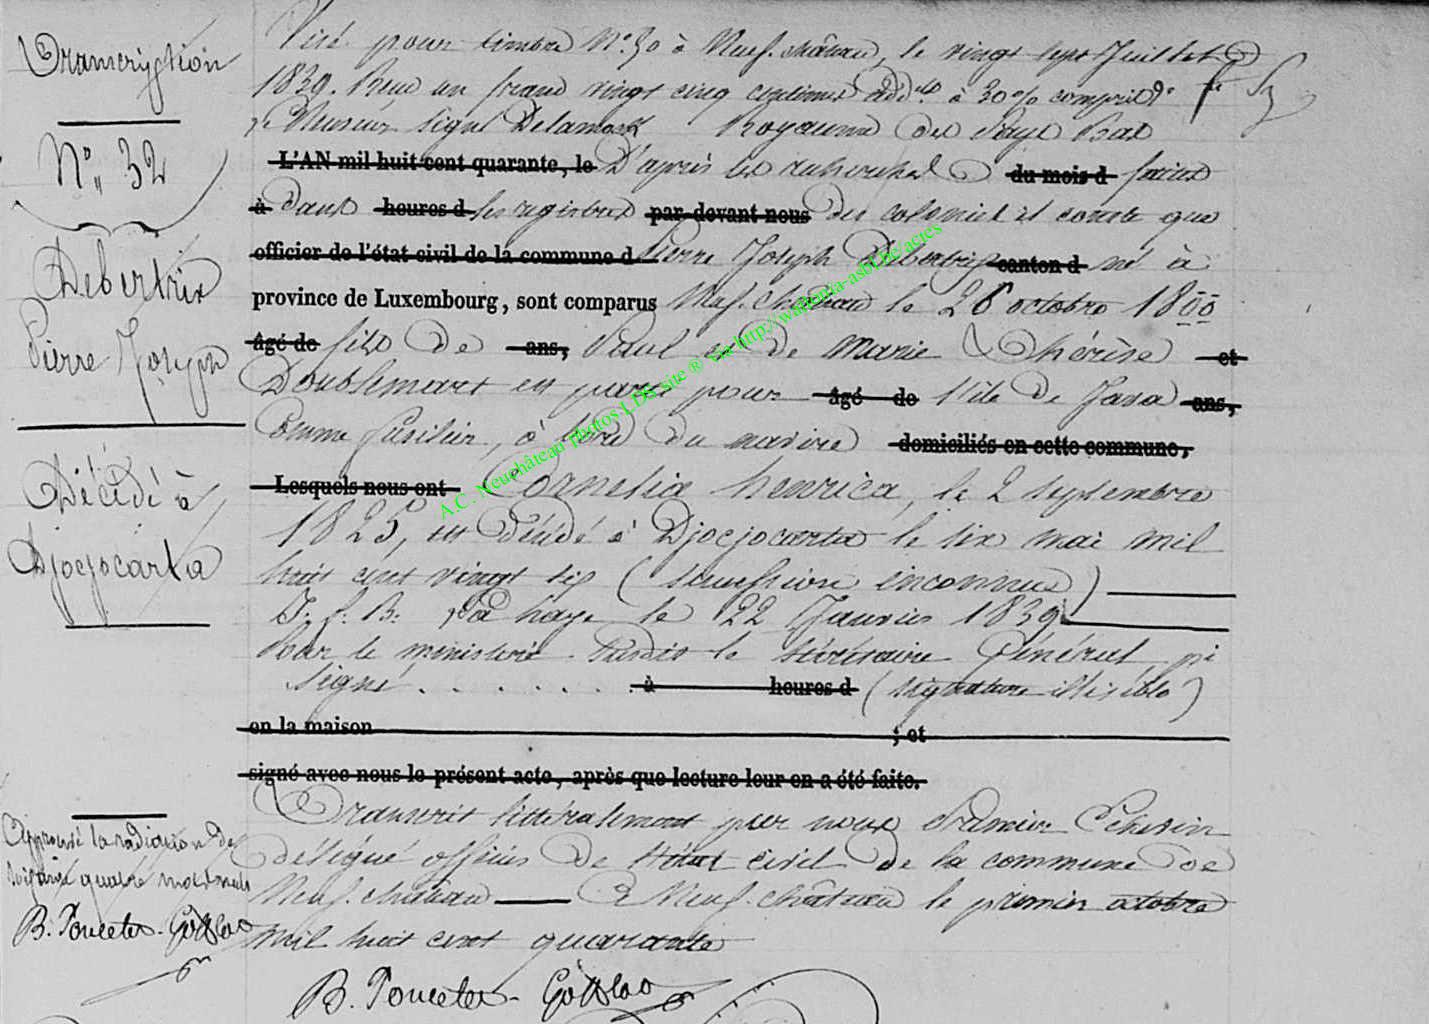 Transcription
N° 32
Debertrix
Pierre Joseph
Décédé à
Djocjocarta
Approuvé la radiation de
soixante quatre mots nuls
B. Poncelet-
Visé pour timbre N° 30 à Neufchâteau, le vingt sept Juillet
1839. Reçu un franc vingt cinq centimes add.els à 30 % compris
le Receveur signé Royaume des Pays Bas
L'AN mil huit cent quarante, le D'après les recherches du mois d faites
à dans heures d les registres par-devant nous des colonies il conste que
officier de l'état civil de la commune d Pierre Joseph Debertrix canton d né à
province de Luxembourg, sont comparus Neufchâteau le 26 octobre 1800
âgé de fils de ans, Paul et de Marie Thérèse et
Doublemart est parti pour âgé de l'île de Java ans,
Comme fusilier, à bord du navire domiciliés en cette commune,
Lesquels nous ont Cornelia henrica, le 2 septembre
1825, est décédé à Djocjocarta le six mai mil
huit cent vingt six (succession inconnue)
La haye le 22 Janvier 1839
Pour le ministère le Secrétaire Général
signé . . . . . . . . à heures d (signature illisible)
en la maison ; et
signé avec nous le présent acte, après que lecture leur en a été faite.
Transcrit littéralement par nous Premier Echevin
délégué officier de l'état civil de la commune de
Neufchâteau à Neufchâteau le premier octobre
mil huit cent quarante
B. Poncelet-
A.C. Neuchâteau photos LDS site ® via http://wallonia-asbl.be/actes